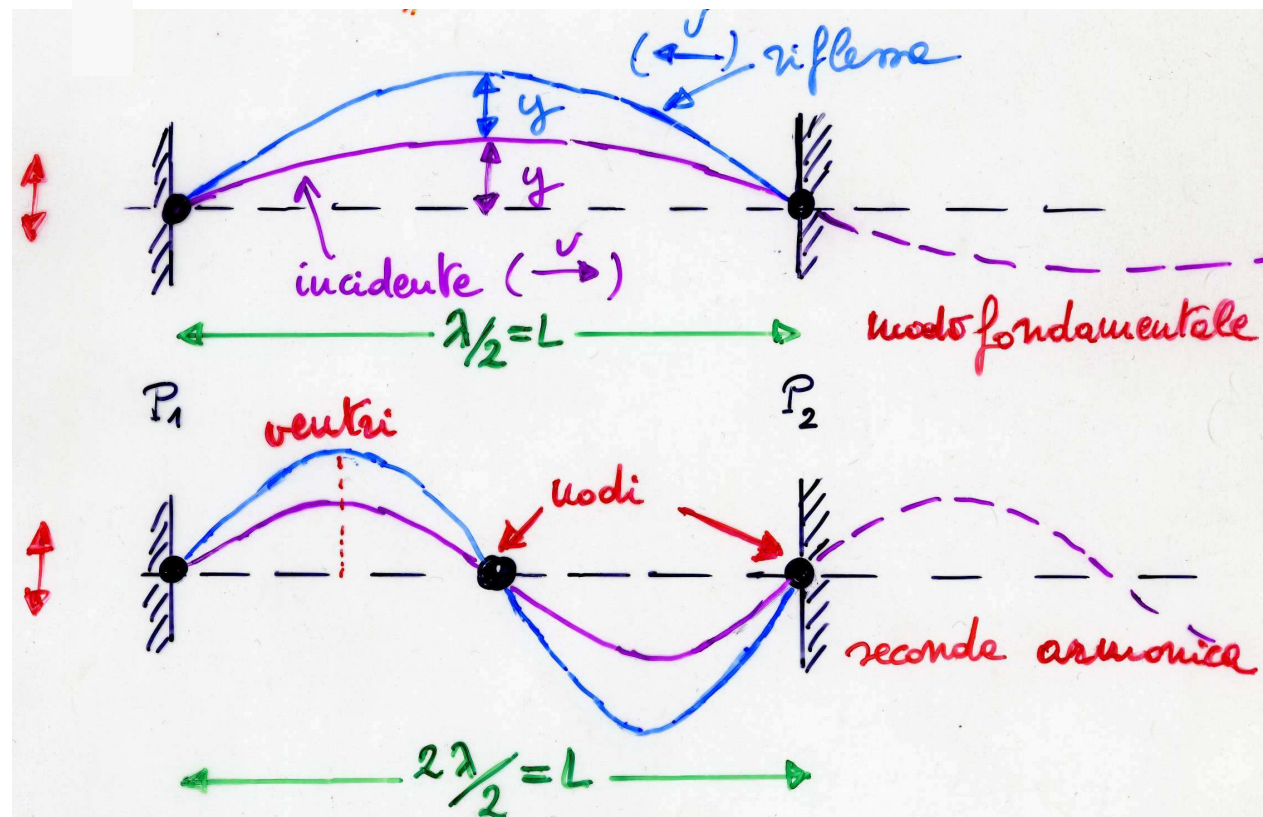 (←v) riflessa
y
y
incidente (v→)
λ/2 = L
modo fondamentale
P₁
P₂
ventri
nodi
seconda armonica
2λ/2 = L